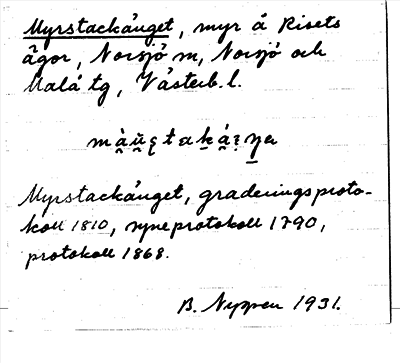 Myrstackänget, myr å Risets
ägor, Norsjö sn, Norsjö och
Malå tg, Västerb. l.
Myrstackänget, graderingsproto-
koll 1810, syneprotokoll 1790,
protokoll 1868.
B. Nyppen 1931.